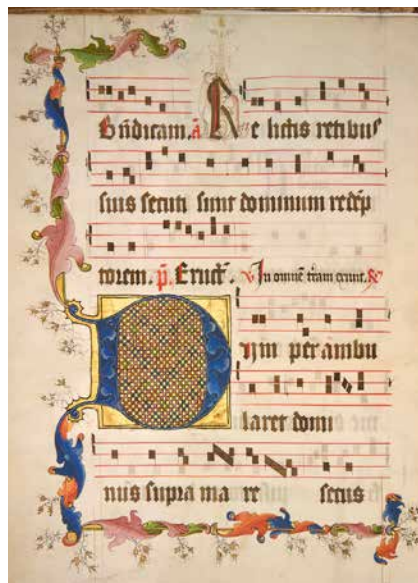 Bn̄dicam. ā Re lictis retibus
suis secuti sunt dominum redēp
torem. p̄. Eruct̄. v In omnē trām
Dum per ambu
laret domi
nus supra ma re secus